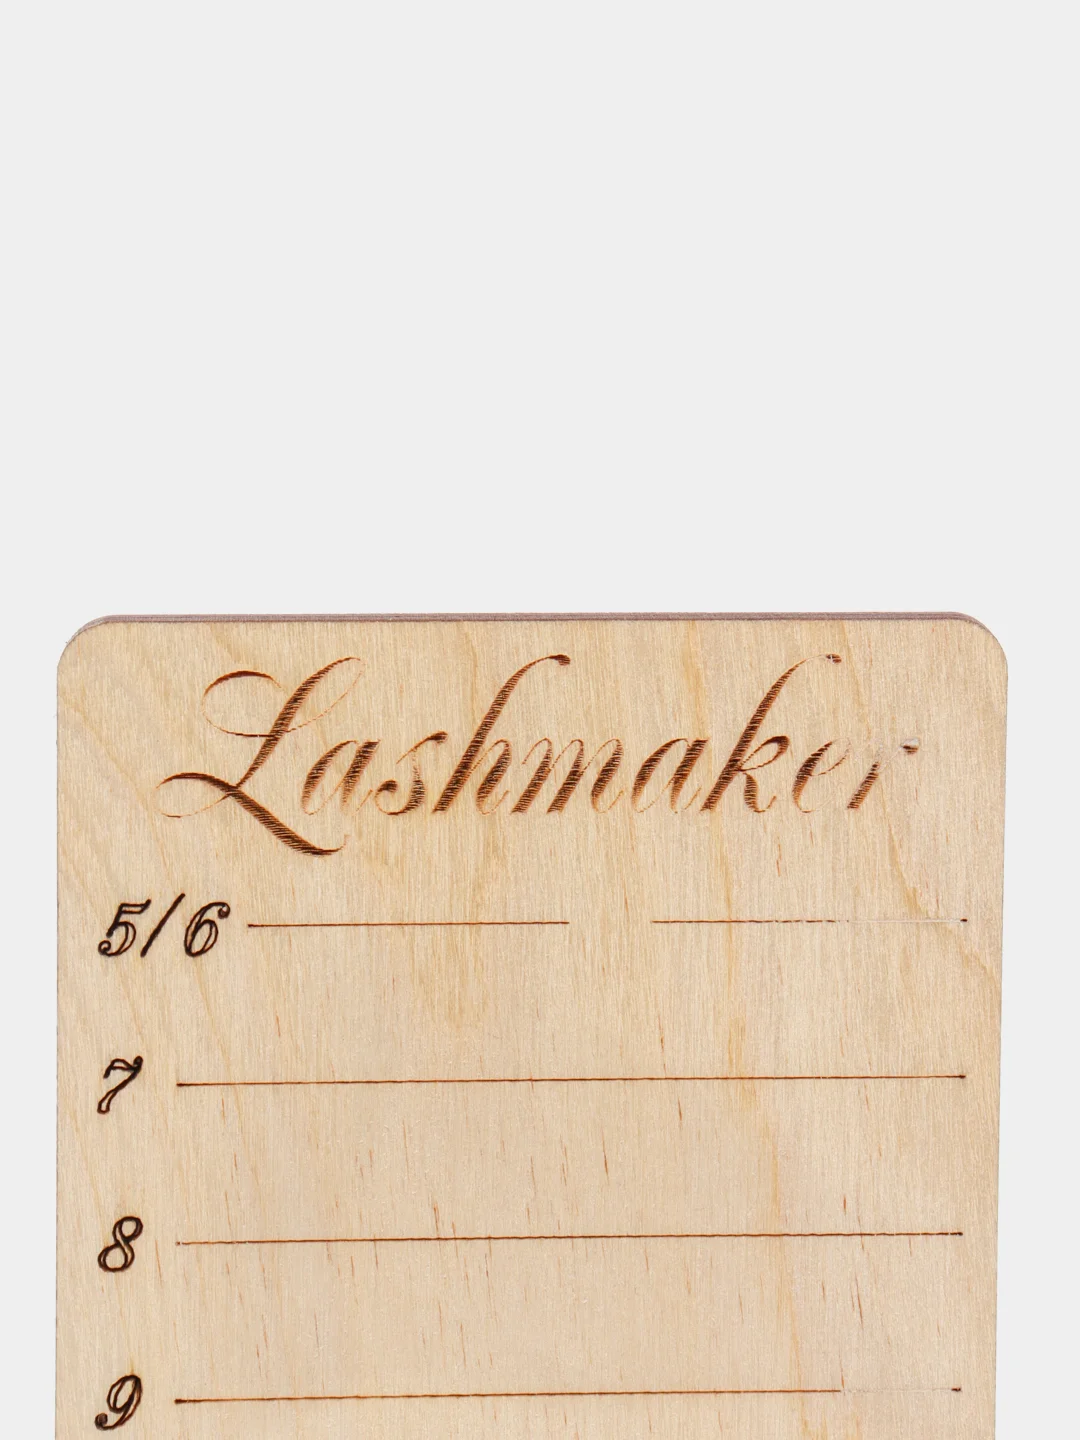 Lashmaker
5/6
7
8
9